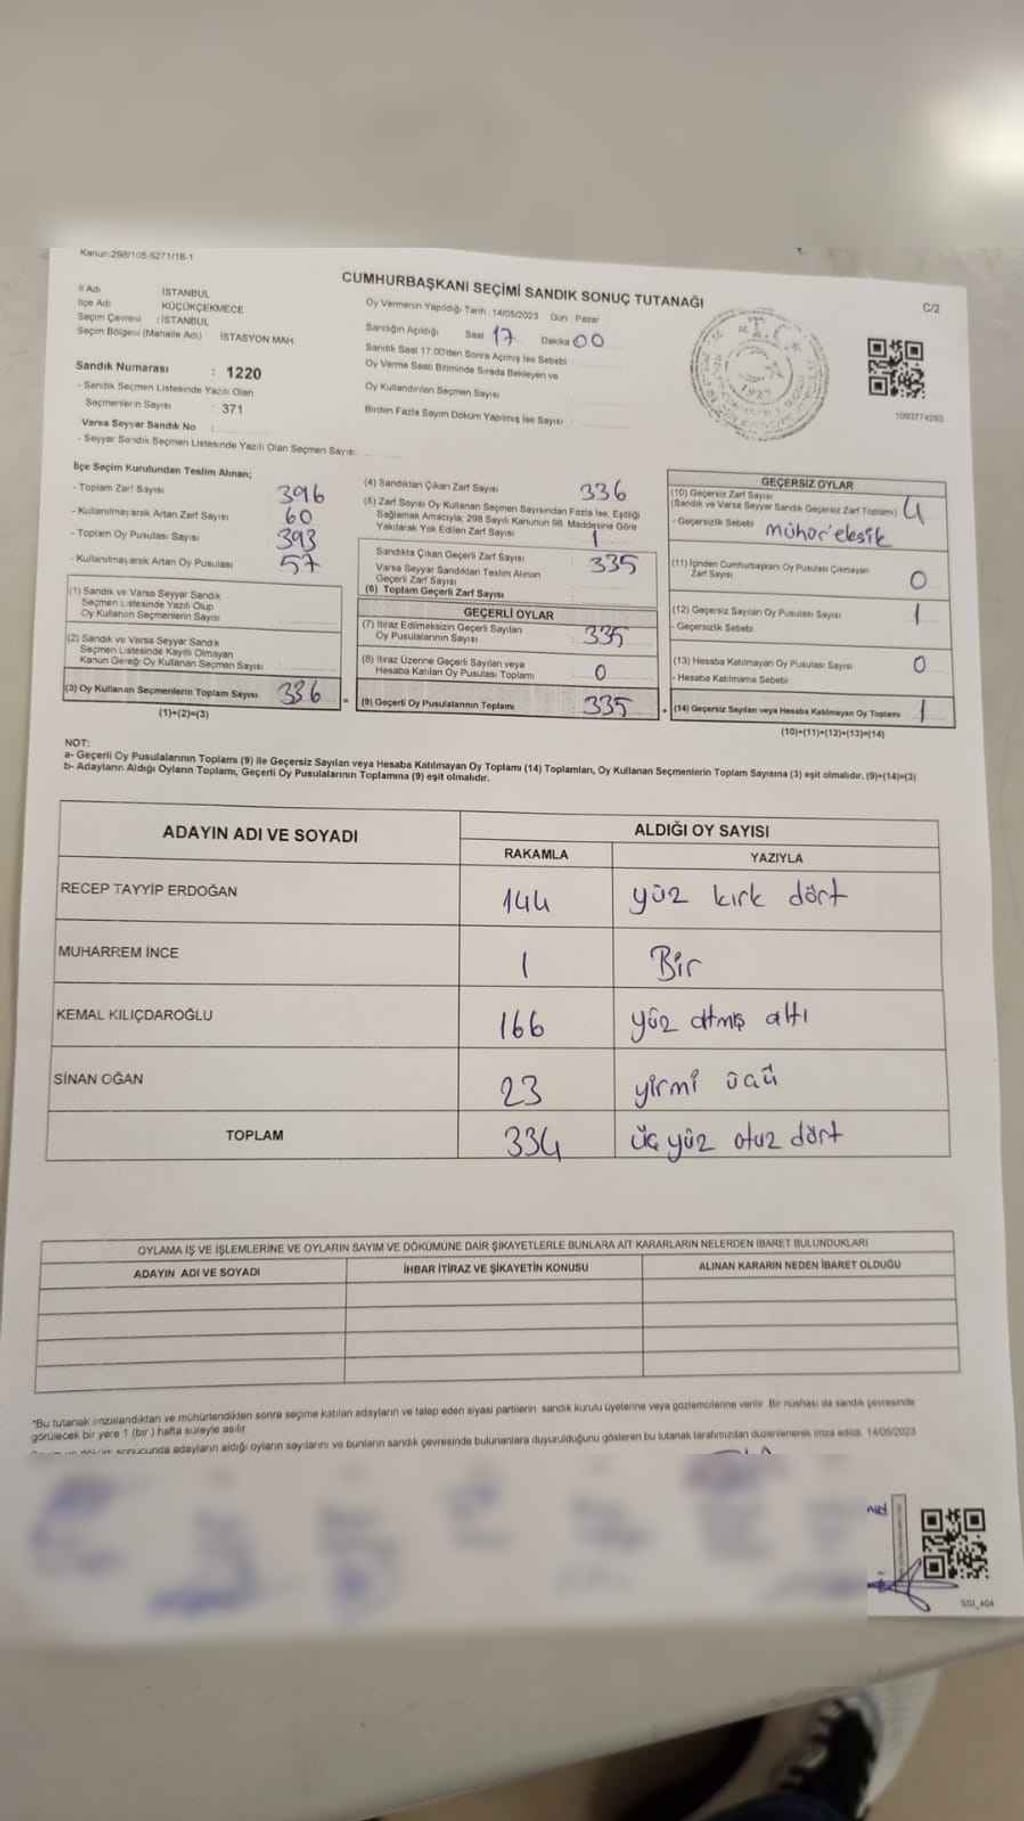 Kanun:298/105-6271/16-1
CUMHURBAŞKANI SEÇİMİ SANDIK SONUÇ TUTANAĞI
C/2
İl Adı : İSTANBUL
İlçe Adı : KÜÇÜKÇEKMECE
Seçim Çevresi : İSTANBUL
Seçim Bölgesi (Mahalle Adı) : İSTASYON MAH.
Sandık Numarası : 1220
- Sandık Seçmen Listesinde Yazılı Olan
Seçmenlerin Sayısı : 371
Varsa Seyyar Sandık No :
- Seyyar Sandık Seçmen Listesinde Yazılı Olan Seçmen Sayısı
Oy Vermenin Yapıldığı Tarih : 14/05/2023 Gün : Pazar
Sandığın Açıldığı Saat 17 Dakika 00
Sandık Saat 17.00'den Sonra Açılmış İse Sebebi
Oy Verme Saati Bitiminde Sırada Bekleyen ve
Oy Kullandırılan Seçmen Sayısı
Birden Fazla Sayım Döküm Yapılmış İse Sayısı
T.C.
1093774293
İlçe Seçim Kurulundan Teslim Alınan;
- Toplam Zarf Sayısı 396
- Kullanılmayarak Artan Zarf Sayısı 60
- Toplam Oy Pusulası Sayısı 393
- Kullanılmayarak Artan Oy Pusulası 57
(1) Sandık ve Varsa Seyyar Sandık
Seçmen Listesinde Yazılı Olup
Oy Kullanan Seçmenlerin Sayısı
(2) Sandık ve Varsa Seyyar Sandık
Seçmen Listesinde Kayıtlı Olmayan
Kanun Gereği Oy Kullanan Seçmen Sayısı
(3) Oy Kullanan Seçmenlerin Toplam Sayısı 336
(1)+(2)=(3)
(4) Sandıktan Çıkan Zarf Sayısı 336
(5) Zarf Sayısı Oy Kullanan Seçmen Sayısından Fazla İse, Eşitliği
Sağlamak Amacıyla, 298 Sayılı Kanunun 98. Maddesine Göre
Yakılarak Yok Edilen Zarf Sayısı 1
Sandıkta Çıkan Geçerli Zarf Sayısı 335
Varsa Seyyar Sandıktan Teslim Alınan
Geçerli Zarf Sayısı
(6) Toplam Geçerli Zarf Sayısı
GEÇERLİ OYLAR
(7) İtiraz Edilmeksizin Geçerli Sayılan
Oy Pusulalarının Sayısı 335
(8) İtiraz Üzerine Geçerli Sayılan veya
Hesaba Katılan Oy Pusulası Toplamı 0
(9) Geçerli Oy Pusulalarının Toplamı 335
GEÇERSİZ OYLAR
(10) Geçersiz Zarf Sayısı
(Sandık ve Varsa Seyyar Sandık Geçersiz Zarf Toplamı) 4
- Geçersizlik Sebebi mühür eksik
(11) İçinden Cumhurbaşkanı Oy Pusulası Çıkmayan
Zarf Sayısı 0
(12) Geçersiz Sayılan Oy Pusulası Sayısı 1
- Geçersizlik Sebebi
(13) Hesaba Katılmayan Oy Pusulası Sayısı 0
- Hesaba Katılmama Sebebi
(14) Geçersiz Sayılan veya Hesaba Katılmayan Oy Toplamı 1
(10)+(11)+(12)+(13)=(14)
NOT:
a- Geçerli Oy Pusulalarının Toplamı (9) ile Geçersiz Sayılan veya Hesaba Katılmayan Oy Toplamı (14) Toplamları, Oy Kullanan Seçmenlerin Toplam Sayısına (3) eşit olmalıdır. (9)+(14)=(3)
b- Adayların Aldığı Oyların Toplamı, Geçerli Oy Pusulalarının Toplamına (9) eşit olmalıdır.
ADAYIN ADI VE SOYADI
ALDIĞI OY SAYISI
RAKAMLA YAZIYLA
RECEP TAYYİP ERDOĞAN 144 yüz kırk dört
MUHARREM İNCE 1 Bir
KEMAL KILIÇDAROĞLU 166 yüz atmış altı
SİNAN OĞAN 23 yirmi üçü
TOPLAM 334 üç yüz otuz dört
OYLAMA İŞ VE İŞLEMLERİNE VE OYLARIN SAYIM VE DÖKÜMÜNE DAİR ŞİKAYETLERLE BUNLARA AİT KARARLARIN NELERDEN İBARET BULUNDUKLARI
ADAYIN ADI VE SOYADI İHBAR İTİRAZ VE ŞİKAYETİN KONUSU ALINAN KARARIN NEDEN İBARET OLDUĞU
"Bu tutanak imzalandıktan ve mühürlendikten sonra seçime katılan adayların ve talep eden siyasi partilerin sandık kurulu üyelerine veya gözlemcilerine verilir. Bir nüshası da sandık çevresinde
görülecek bir yere 1 (bir) hafta süreyle asılır.
sonucunda adayların aldığı oyların sayılarını ve bunların sandık çevresinde bulunanlara duyurulduğunu gösteren bu tutanak tarafımızdan düzenlenerek imza edildi. 14/05/2023